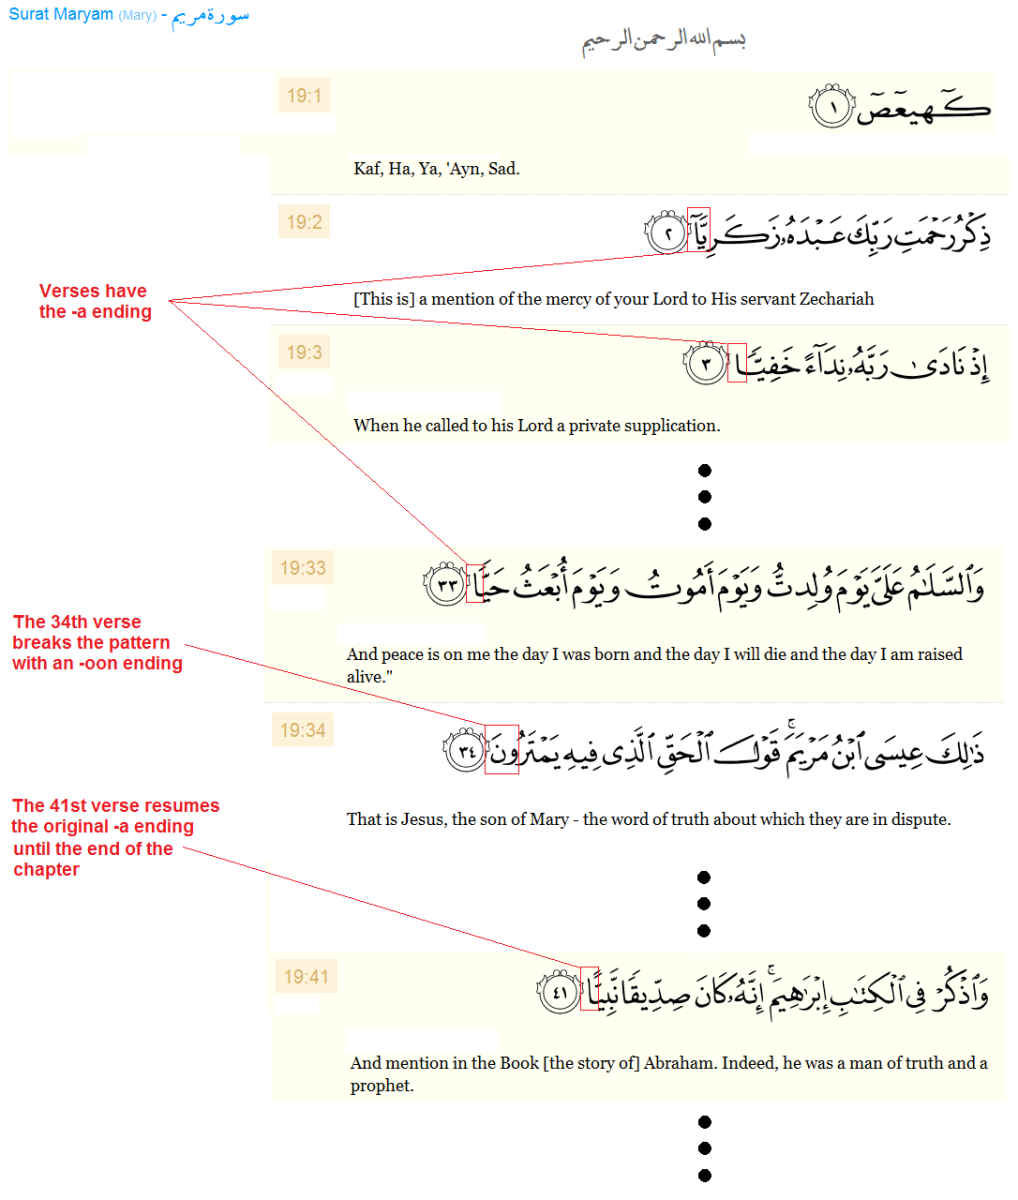 Surat Maryam (Mary) - سورة مريم
بسم الله الرحمن الرحيم
19:1
كٓهيعٓصٓ ١
Kaf, Ha, Ya, 'Ayn, Sad.
19:2
ذِكْرُ رَحْمَتِ رَبِّكَ عَبْدَهُۥ زَكَرِيَّآ ٢
Verses have
the -a ending
[This is] a mention of the mercy of your Lord to His servant Zechariah
19:3
إِذْ نَادَىٰ رَبَّهُۥ نِدَآءً خَفِيًّا ٣
When he called to his Lord a private supplication.
19:33
وَٱلسَّلَٰمُ عَلَىَّ يَوْمَ وُلِدتُّ وَيَوْمَ أَمُوتُ وَيَوْمَ أُبْعَثُ حَيًّا ٣٣
The 34th verse
breaks the pattern
with an -oon ending
And peace is on me the day I was born and the day I will die and the day I am raised
alive."
19:34
ذَٰلِكَ عِيسَى ٱبْنُ مَرْيَمَ ۚ قَوْلَ ٱلْحَقِّ ٱلَّذِى فِيهِ يَمْتَرُونَ ٣٤
The 41st verse resumes
the original -a ending
until the end of the
chapter
That is Jesus, the son of Mary - the word of truth about which they are in dispute.
19:41
وَٱذْكُرْ فِى ٱلْكِتَٰبِ إِبْرَٰهِيمَ ۚ إِنَّهُۥ كَانَ صِدِّيقًا نَّبِيًّا ٤١
And mention in the Book [the story of] Abraham. Indeed, he was a man of truth and a
prophet.